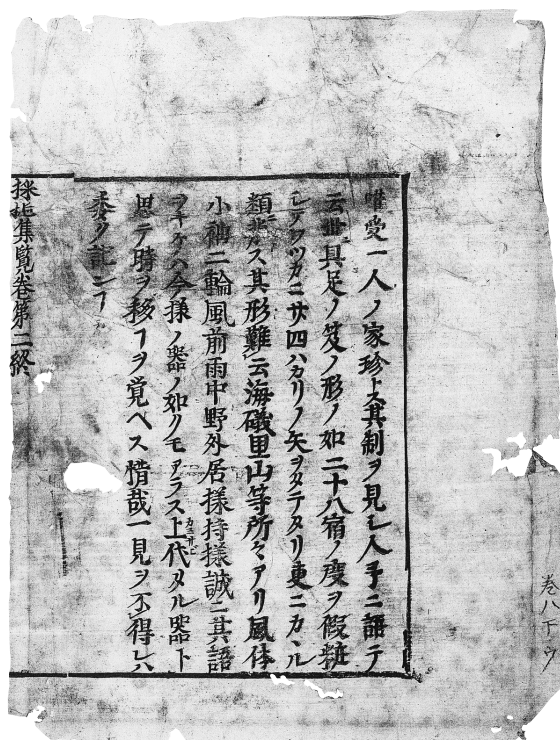 唯愛一人ノ家珍トス其制ヲ見シ人予ニ語テ
云世具足ノ笈ノ形ノ如二十八宿ノ度ヲ仮粧
シアワツカニ廿四ハカリノ矢ヲタテタリ更ニカヽル
類ニ非ス其形難云海磯里山等所々アリ風体
小袖ニ輪風前雨中野外居様持様誠ニ其語
ツキケハ今様ノ器ノ如クモアラス上代タル器ト
思テ時ヲ移フヲ覚ヘス惜哉一見ヲ不得レハ
委ク記
採集覧巻第二終
巻八下ウ